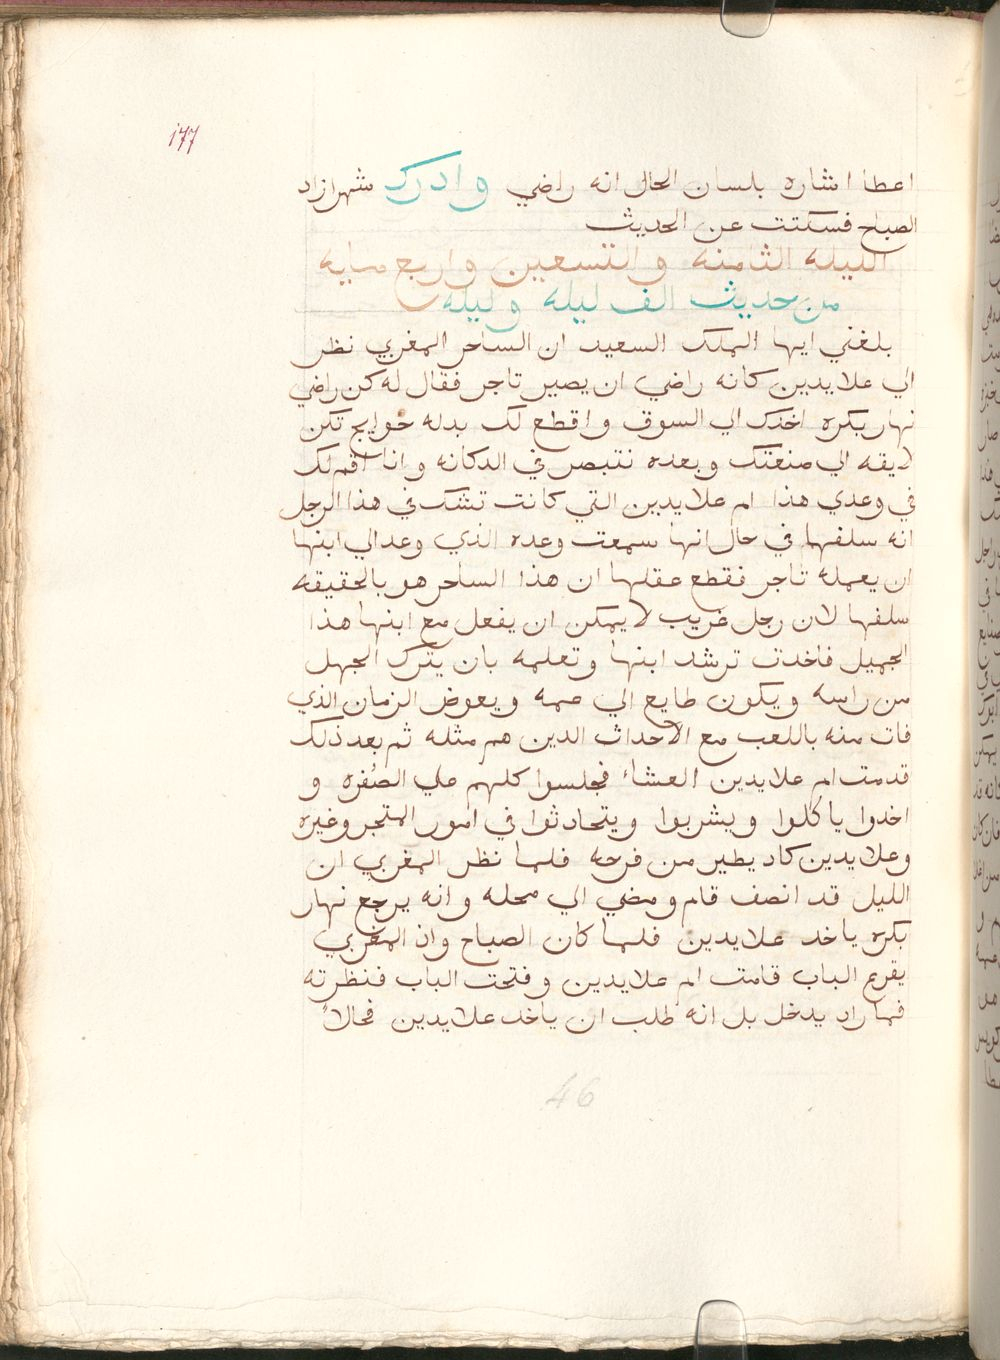 177
اعطا اشاره بلسان الحال انه راضي وادرك شهرازاد
الصباح فسكتت عن الحديث
الليله الثامنه والتسعين واربع مايه
من حديث الف ليله وليله
بلغني ايها الملك السعيد ان الساحر المغربي نظر
الي علايدين كانه راضي ان يصير تاجر فقال له كن راضي
نهار بكره اخدك الي السوق واقطع لك بدله حوايج تكن
لايقه الي صنعتك وبعده نتبصر في الدكانه وانا اقم لك
في وعدي هذا ام علايدين التي كانت تشك في هذا الرجل
انه سلفها في حال انها سمعت وعده الذي وعد الي ابنها
ان يعمله تاجر فقطع عقلها ان هذا الساحر هو بالحقيقه
سلفها لان رجل غريب لا يمكن ان يفعل مع ابنها هذا
الجميل فاخدت ترشد ابنها وتعلمه بان يترك الجهل
من راسه ويكون طايع الي عمه ويعوض الزمان الذي
فات منه باللعب مع الاحداث الدين هم مثله ثم بعد ذلك
قدمت ام علايدين العشاء فجلسوا كلهم علي الصُفره و
اخدوا ياكلوا ويشربوا ويتحادثوا في امور المتجر وغيره
وعلايدين كاد يطير من فرحه فلما نظر المغربي ان
الليل قد انصف قام ومضي الي محله وانه يرجع نهار
بكره ياخد علايدين فلما كان الصباح وان المغربي
يقرع الباب قامت ام علايدين وفتحت الباب فنظرته
فما راد يدخل بل انه طلب ان ياخد علايدين فحالاً
46